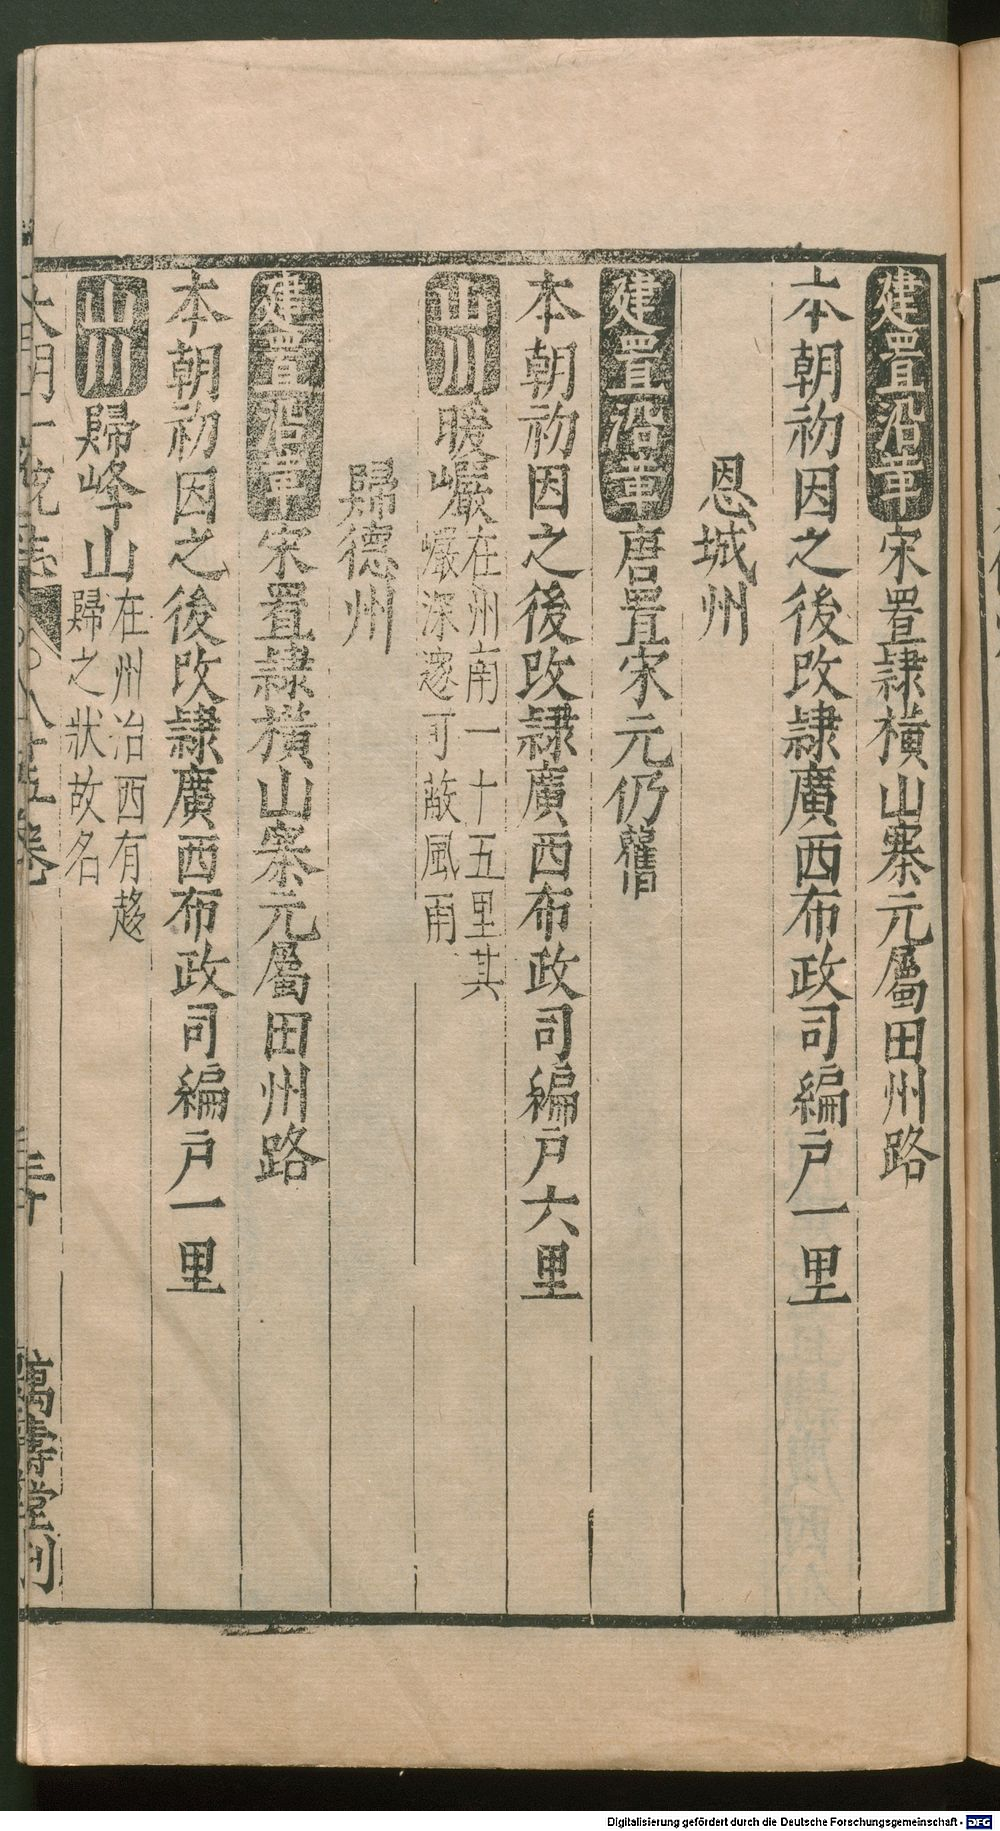 建置沿革宋置隷橫山寨元屬田州路
本朝初因之後改隷廣西布政司編戶一里
恩城州
建置沿革唐置宋元仍舊
本朝初因之後改隷廣西布政司編戶六里
山川暖巖在州南一十五里其
巖深邃可蔽風雨
歸德州
建置沿革宋置隷橫山寨元屬田州路
本朝初因之後改隷廣西布政司編戶一里
山川歸峰山在州治西有趨
歸之狀故名
大明一統志 八十五卷 萬壽堂刊
Digitalisierung gefördert durch die Deutsche Forschungsgemeinschaft - DFG